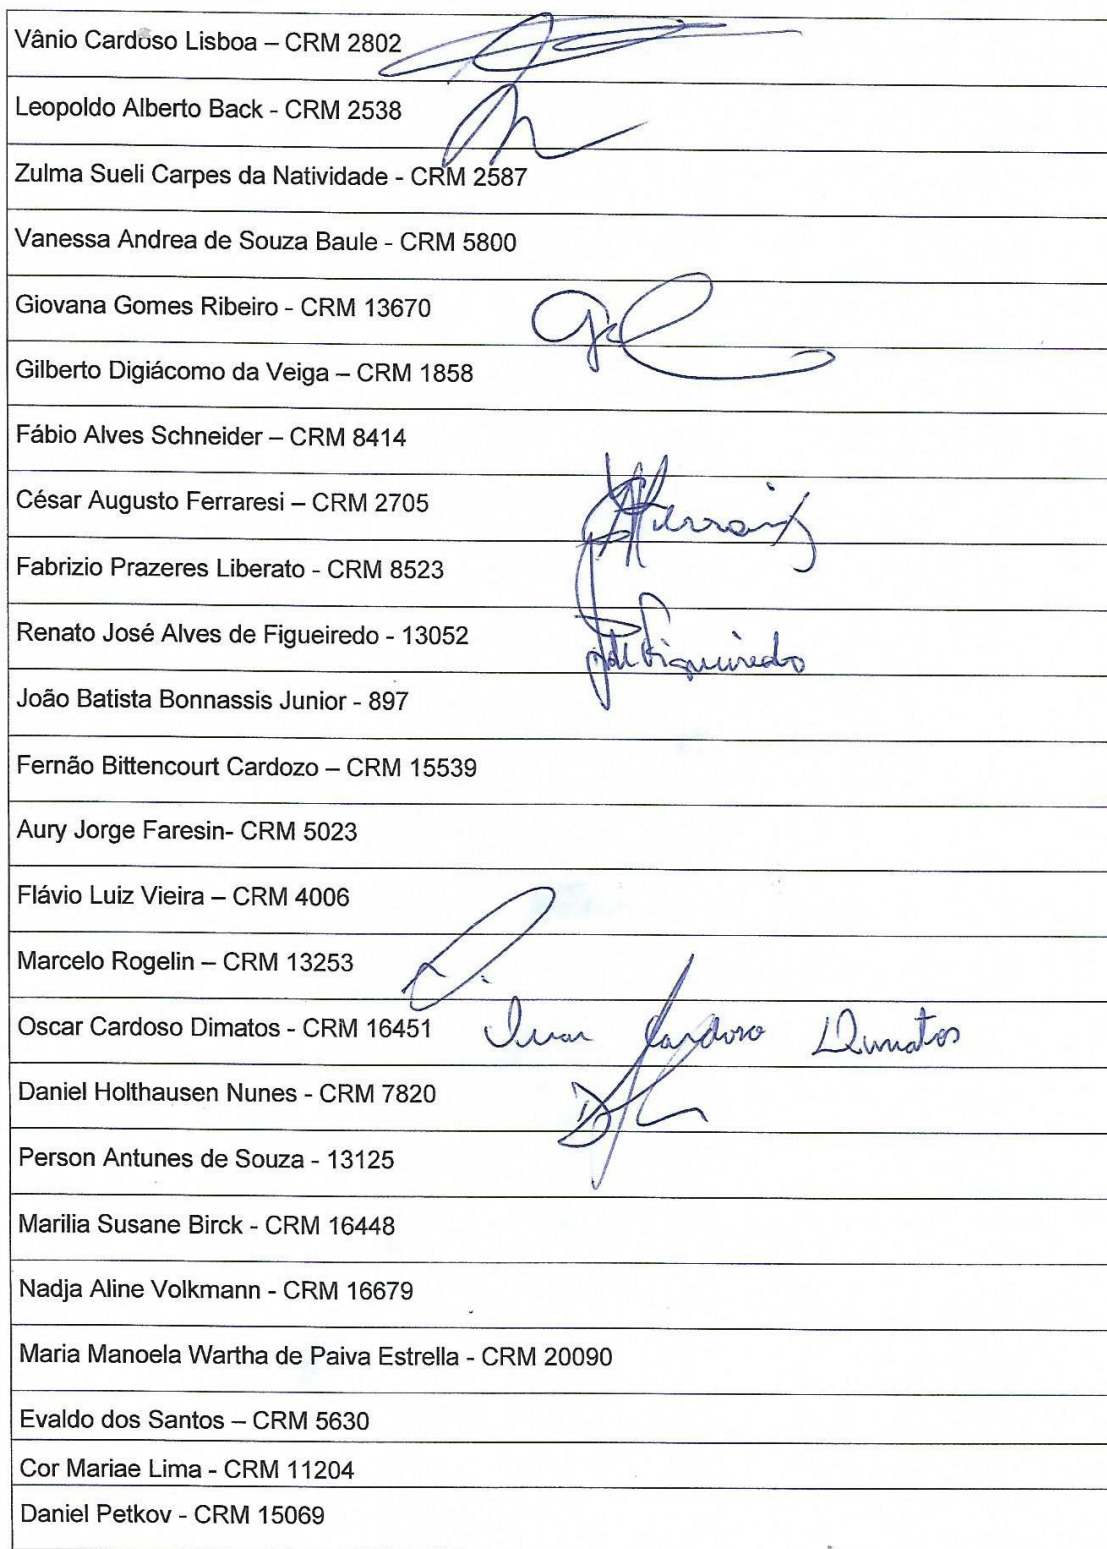 Vânio Cardoso Lisboa – CRM 2802
Leopoldo Alberto Back - CRM 2538
Zulma Sueli Carpes da Natividade - CRM 2587
Vanessa Andrea de Souza Baule - CRM 5800
Giovana Gomes Ribeiro - CRM 13670
Gilberto Digiácomo da Veiga – CRM 1858
Fábio Alves Schneider – CRM 8414
César Augusto Ferraresi – CRM 2705
Fabrizio Prazeres Liberato - CRM 8523
Renato José Alves de Figueiredo - 13052
Figueiredo
João Batista Bonnassis Junior - 897
Fernão Bittencourt Cardozo – CRM 15539
Aury Jorge Faresin- CRM 5023
Flávio Luiz Vieira – CRM 4006
Marcelo Rogelin – CRM 13253
Oscar Cardoso Dimatos - CRM 16451 Oscar Cardoso Dimatos
Daniel Holthausen Nunes - CRM 7820
Person Antunes de Souza - 13125
Marilia Susane Birck - CRM 16448
Nadja Aline Volkmann - CRM 16679
Maria Manoela Wartha de Paiva Estrella - CRM 20090
Evaldo dos Santos – CRM 5630
Cor Mariae Lima - CRM 11204
Daniel Petkov - CRM 15069